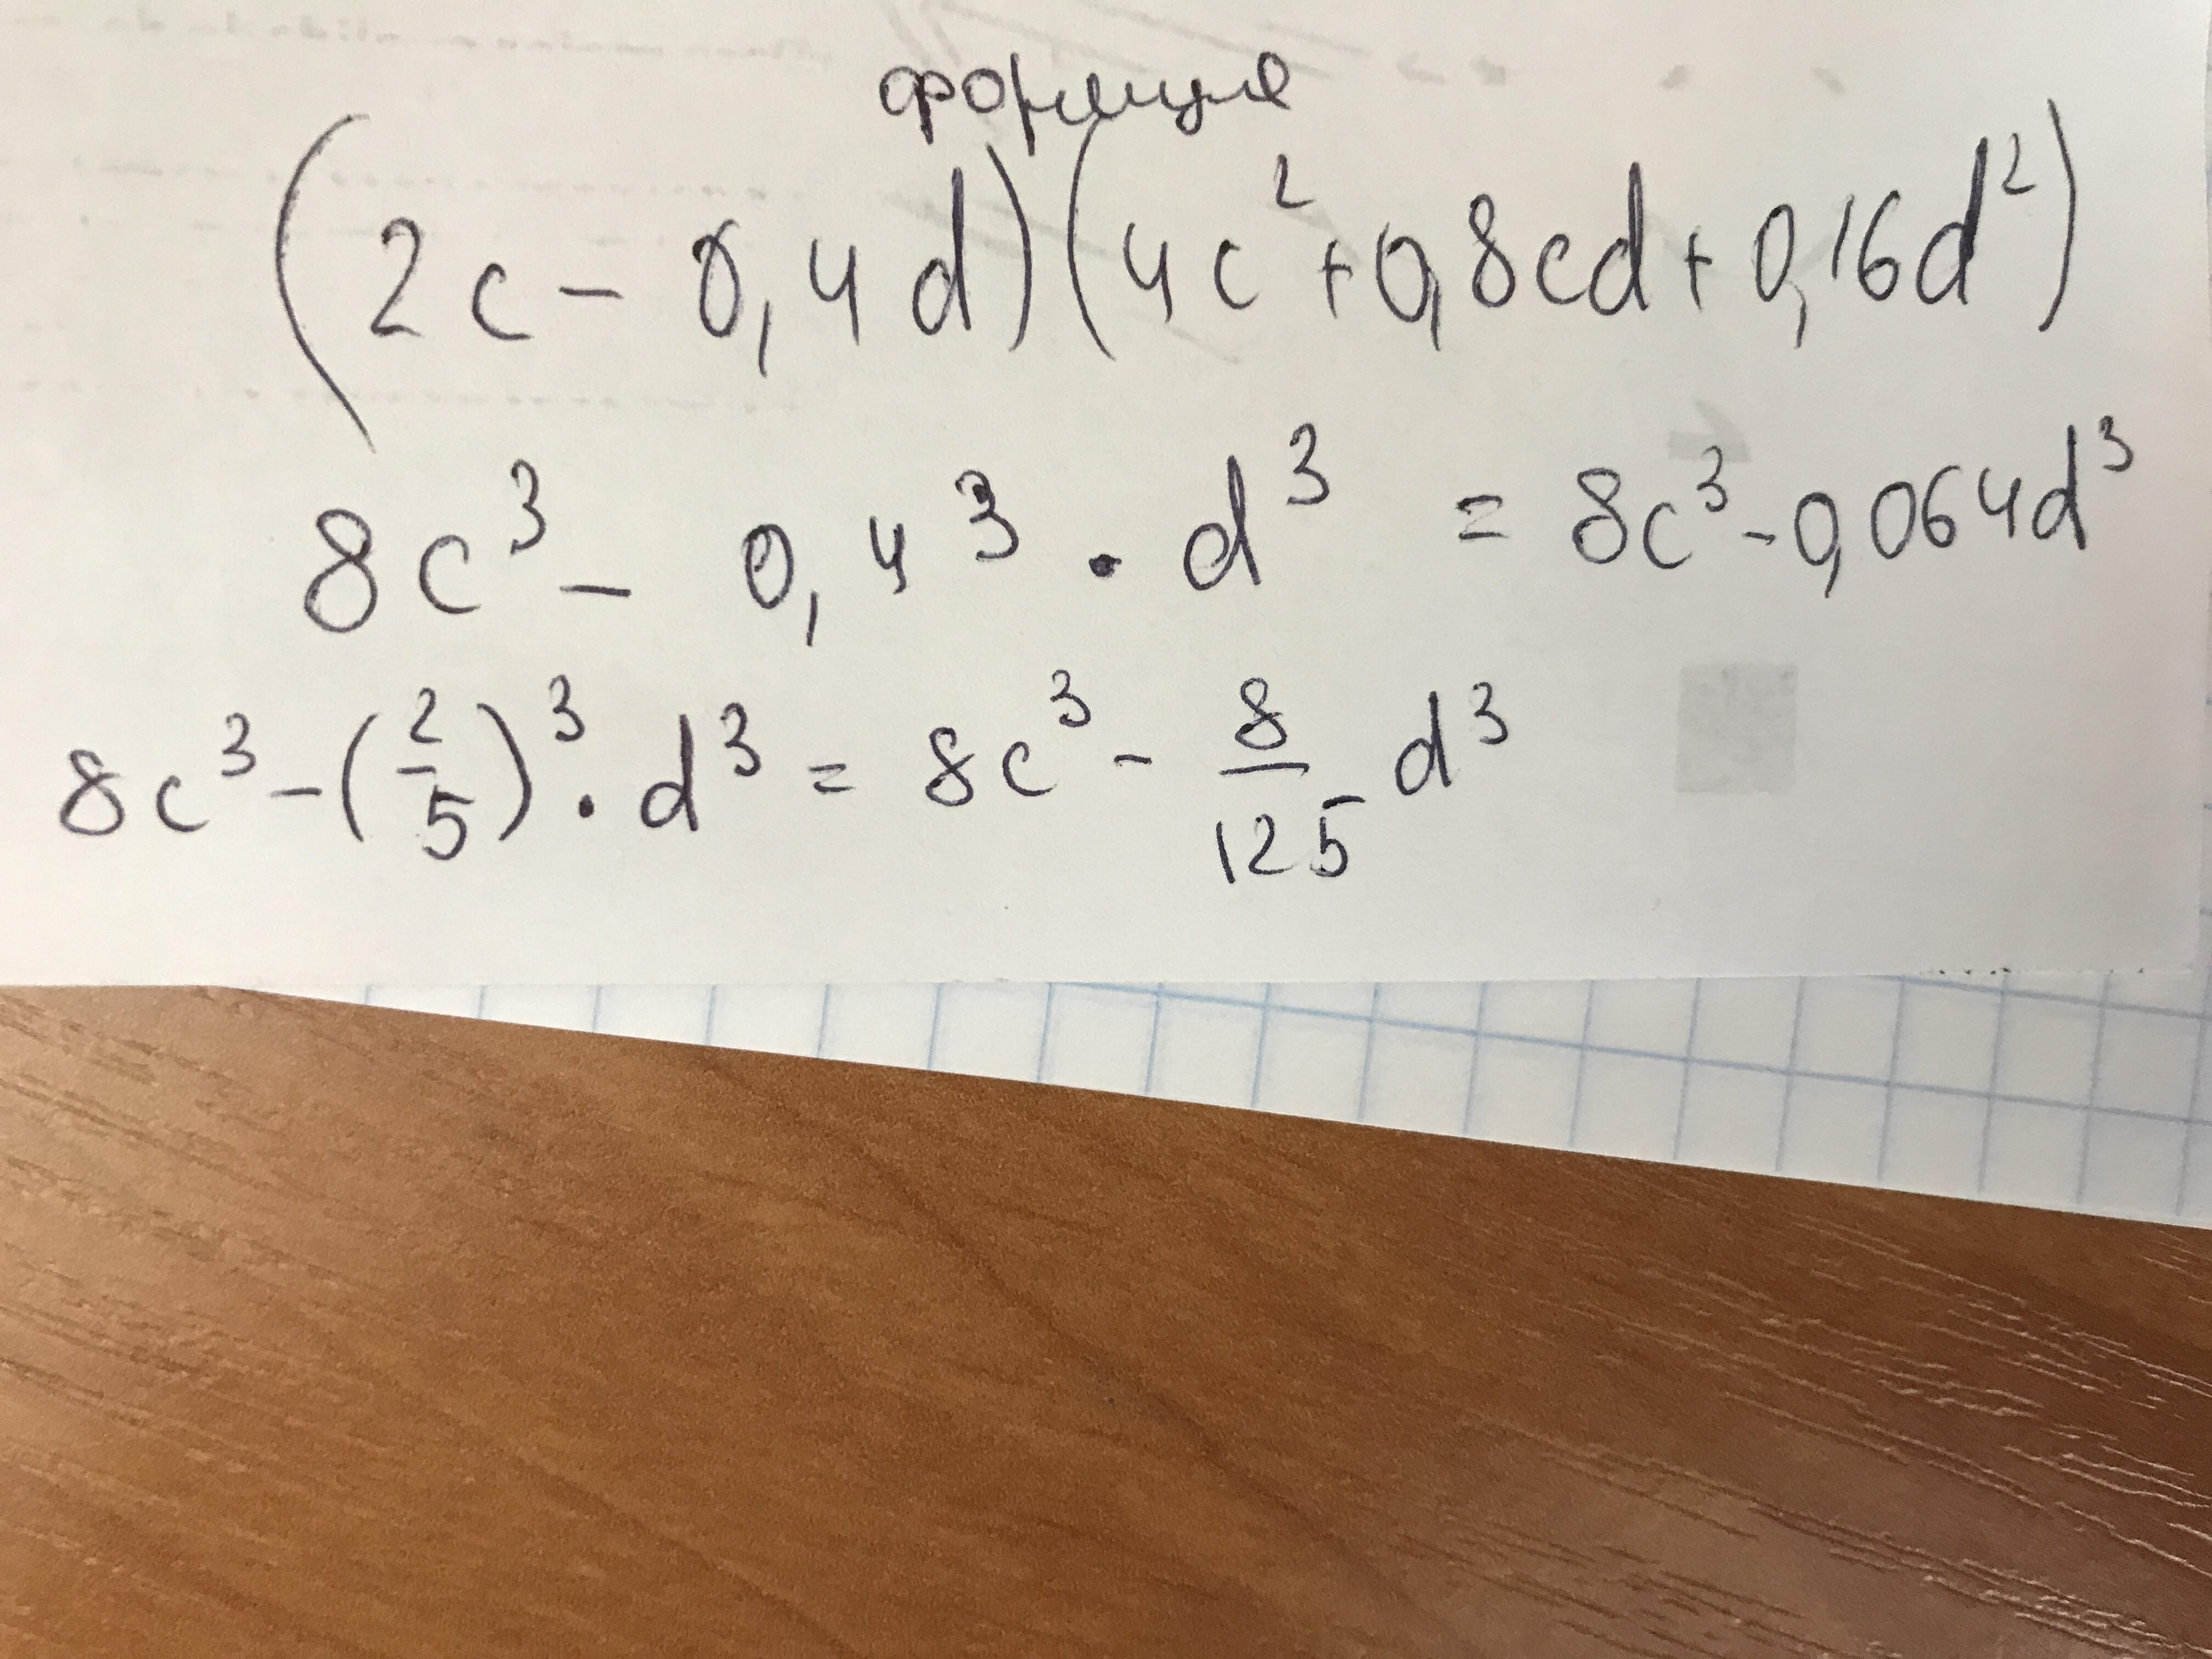 формуле
(2c - 0,4d)(4c² + 0,8cd + 0,16d²)
8c³ - 0,4³ · d³ = 8c³ - 0,064d³
8c³ - (2/5)³ · d³ = 8c³ - 8/125 d³